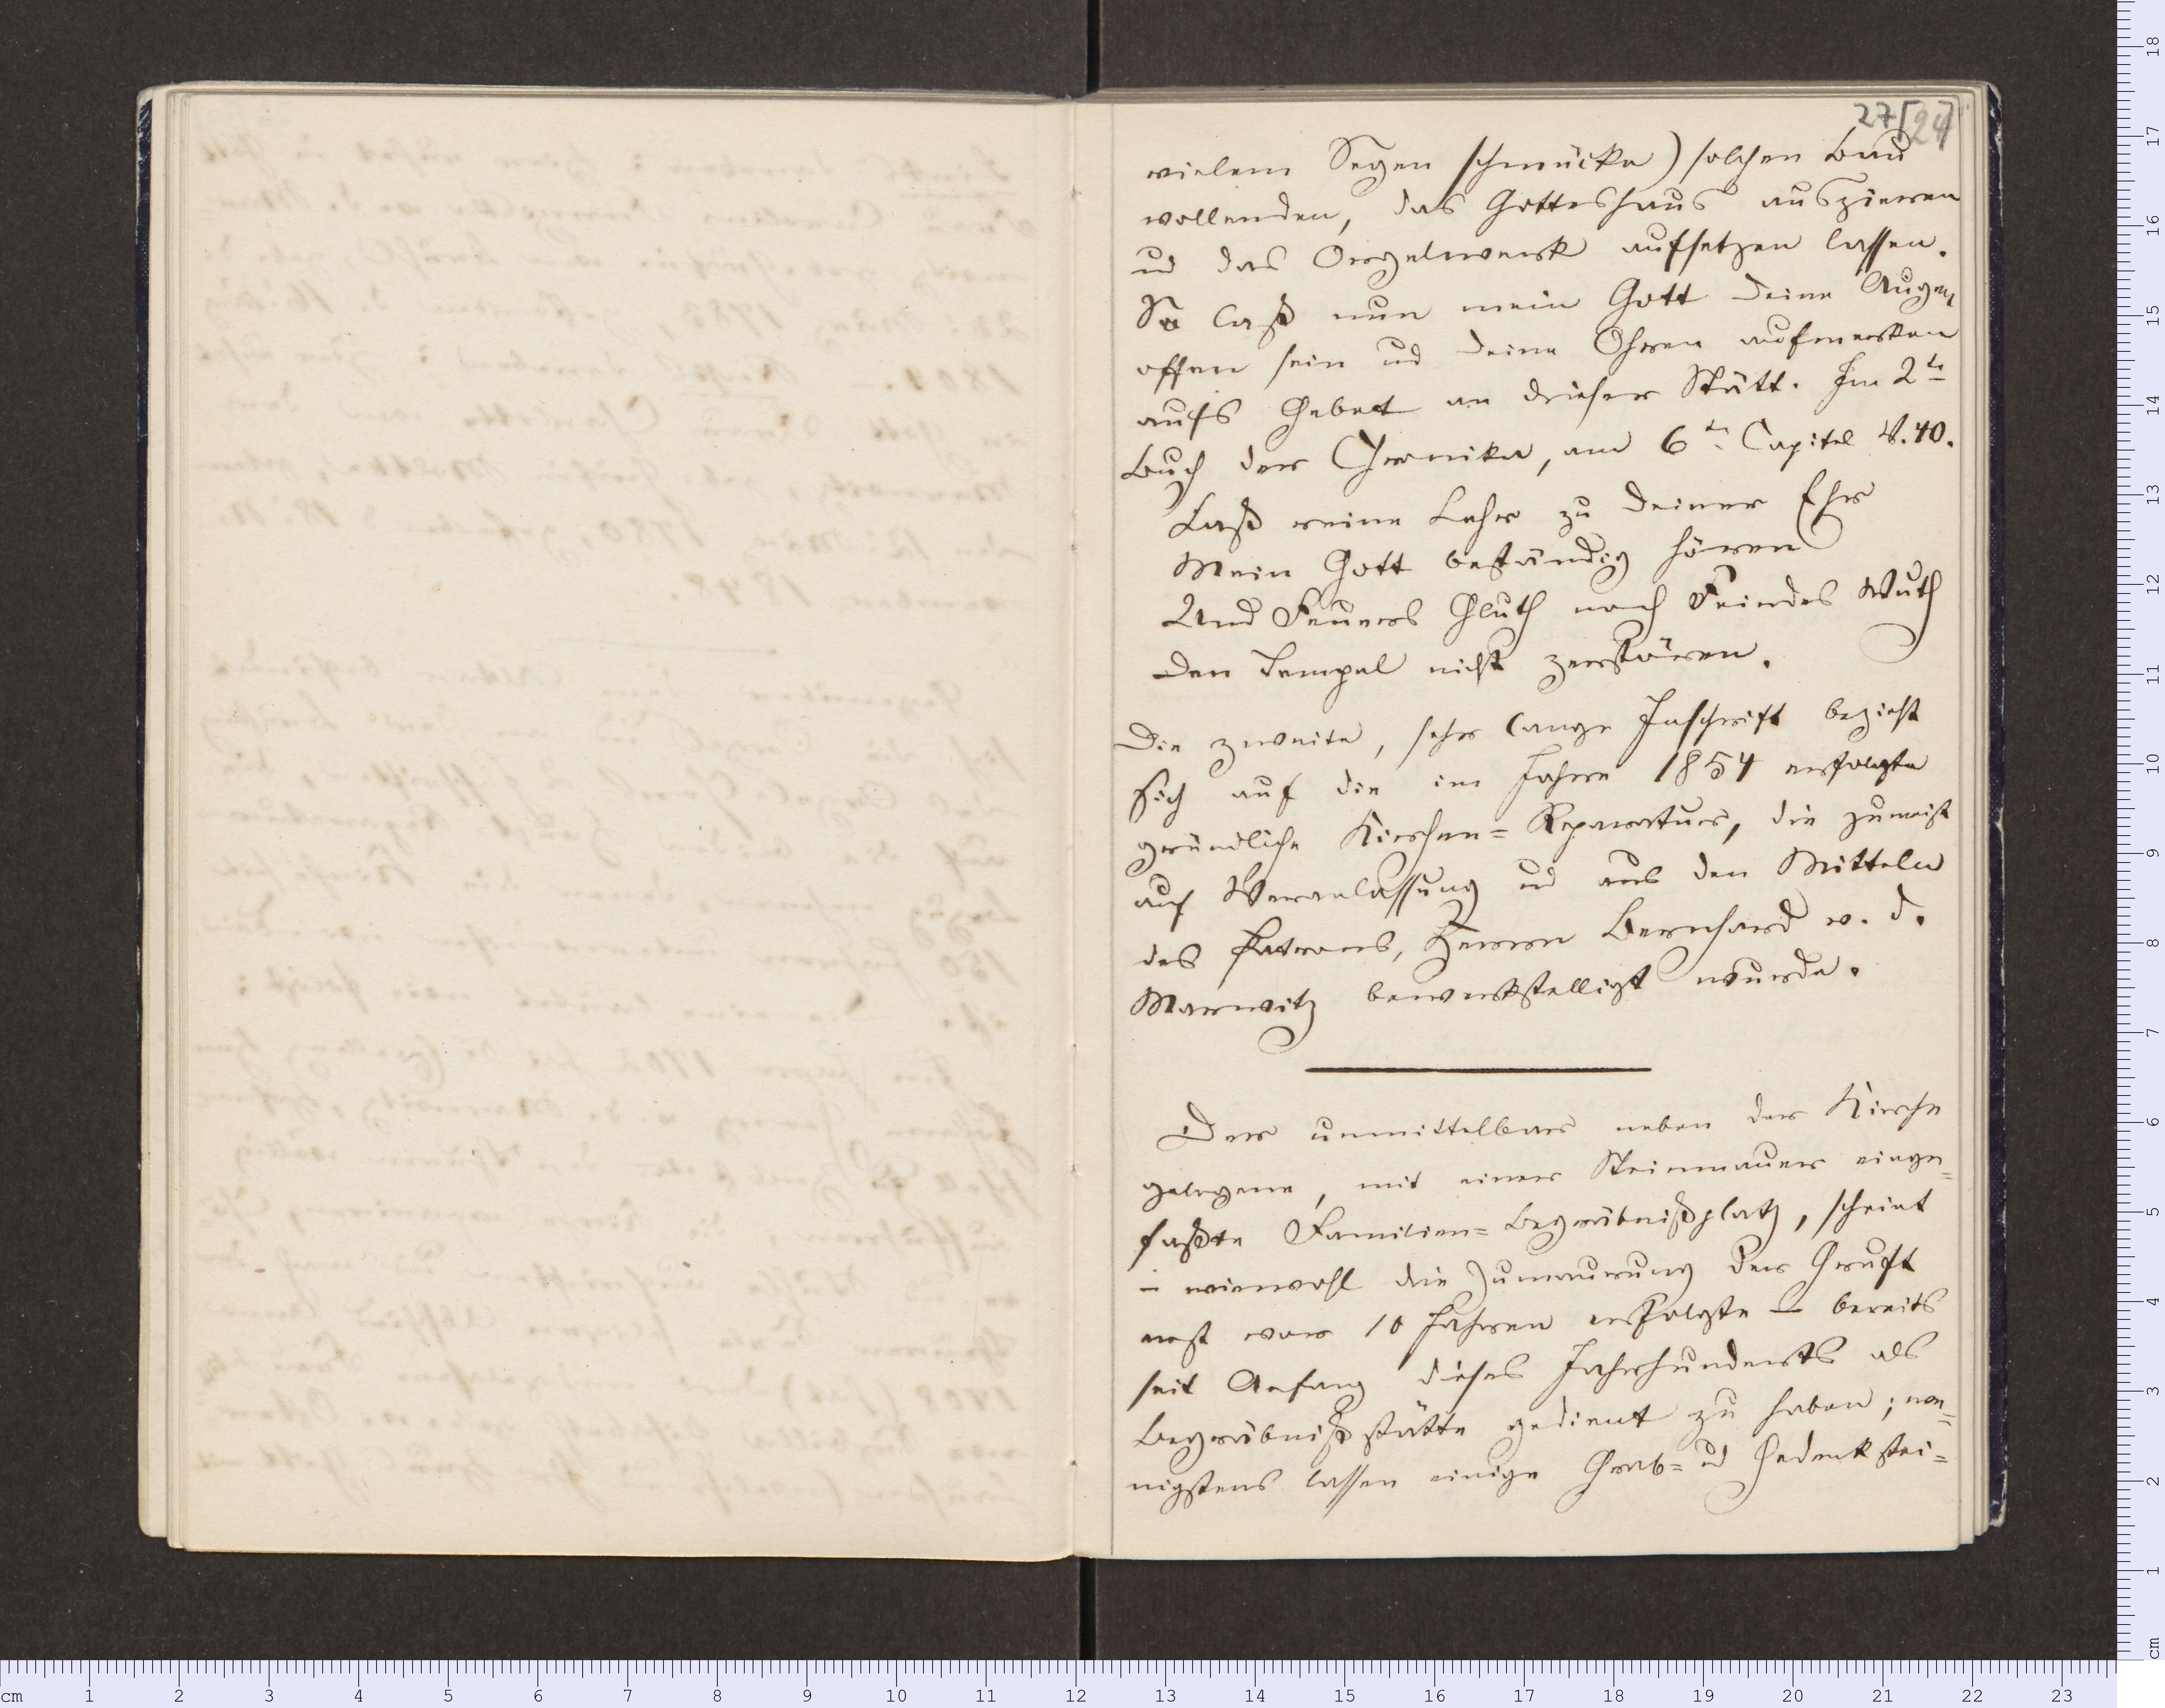 27[24]
vielem Segen schmücke) solchen Bau
vollenden, das Gotteshaus auszieren
ud das Orgelwerk aufsetzen lassen.
So laß nun mein Gott deine Augen
offen sein ud deine Ohren aufmerken
aufs Gebet an dieser Stätt. Im 2te
Buch der Chronika, am 6ten Capitel V. 40.
Laß reine Lehr zu deiner Ehr
Mein Gott beständig hören
Und Feuers Gluth noch Feindes Wuth
Den Tempel nicht zerstören.
Die zweite, sehr lange Inschrift bezieht
sich auf die im Jahre 1854 erfolgte
gründliche Kirchen=Reparatur, die zumeist
auf Veranlassung ud aus den Mitteln
des Patrons, Herrn Bernhard v. d.
Marwitz bewerkstelligt wurde.
Der unmittelbar neben der Kirche
gelegene, mit einer Steinmauer einge=
faßte Familien=Begräbnißplatz, scheint
– wiewohl die Zumaurung der Gruft
erst vor 10 Jahren erfolgte – bereits
seit Anfang dieses Jahrhunderts als
Begräbnißstätte gedient zu haben; we=
nigstens lassen einige Grab= ud Gedenkstei=